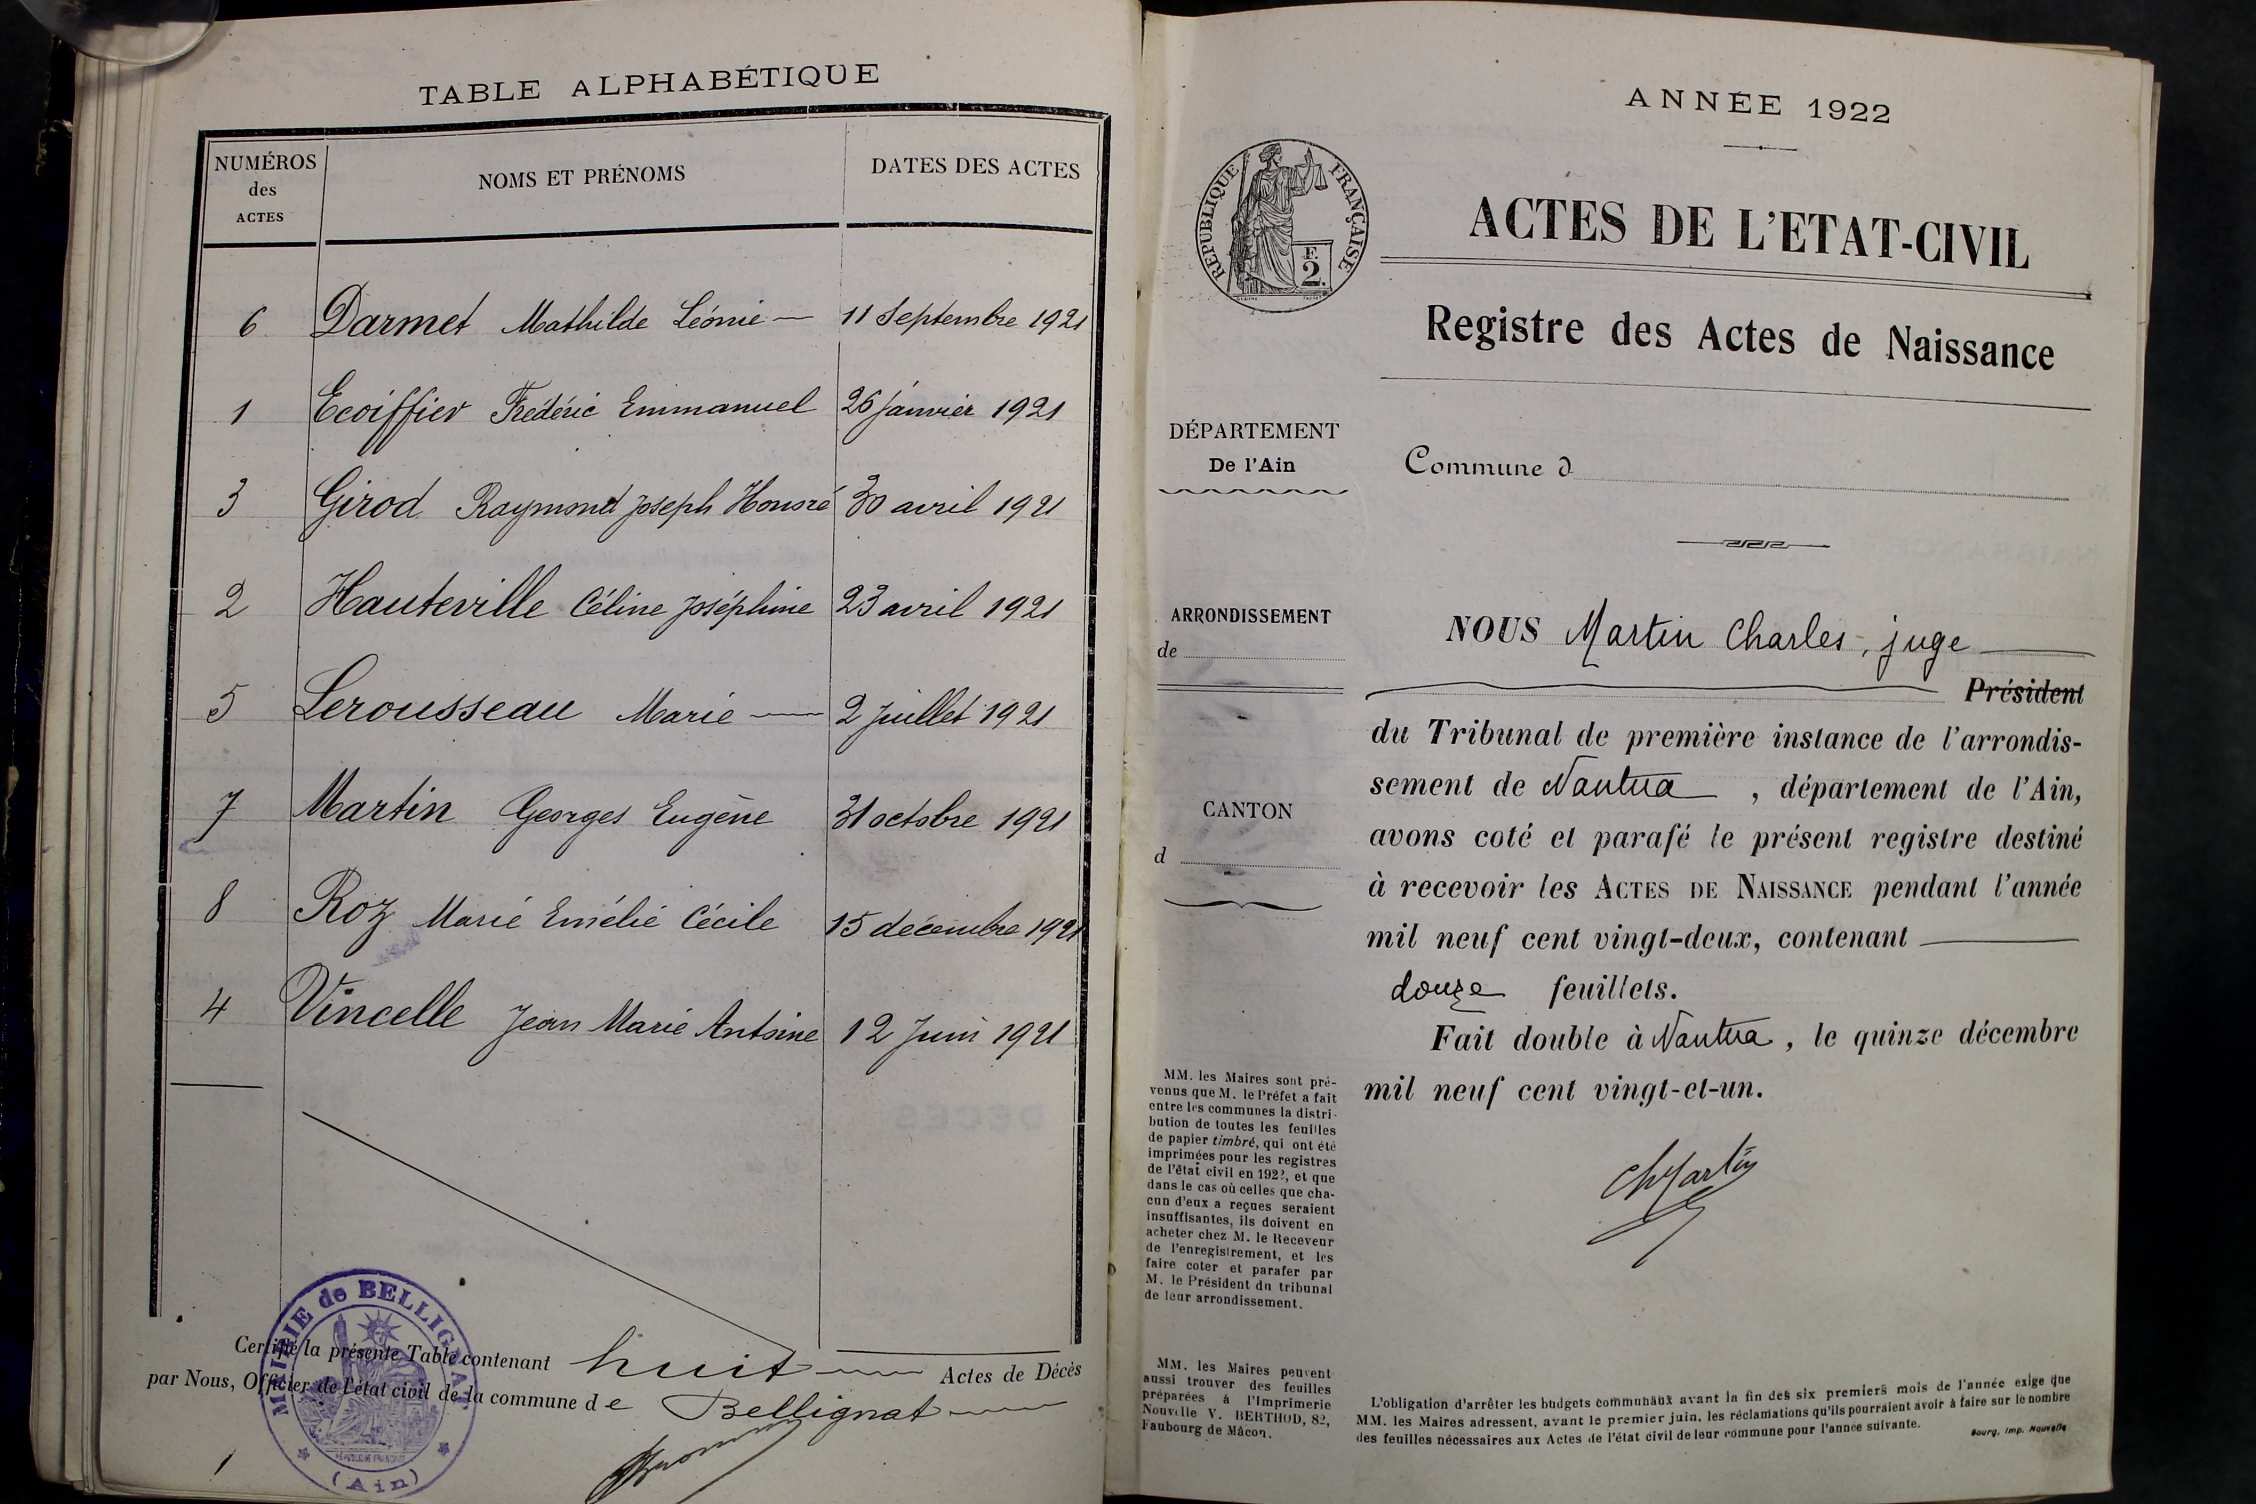 TABLE ALPHABÉTIQUE
NUMÉROS des ACTES
NOMS ET PRÉNOMS
DATES DES ACTES
6 Darmet Mathilde Léonie — 11 Septembre 1921
1 Ecoiffier Frédéric Emmanuel 26 janvier 1921
3 Girod Raymond Joseph Honoré 30 avril 1921
2 Hauteville Céline Joséphine 23 avril 1921
5 Lerousseau Marie — 2 Juillet 1921
7 Martin Georges Eugène 31 octobre 1921
8 Roz Marie Emélie Cécile 15 décembre 1921
4 Vincelle Jean Marie Antoine 12 Juin 1921
Certifié la présente Table contenant huit — Actes de Décès
par Nous, Officier de l'état civil de la commune de Bellignat —
MAIRIE de BELLIGNAT
(Ain)
ANNÉE 1922
RÉPUBLIQUE FRANÇAISE
F
2.
ACTES DE L'ETAT-CIVIL
Registre des Actes de Naissance
DÉPARTEMENT
De l'Ain
Commune d
ARRONDISSEMENT
de
CANTON
d
NOUS Martin Charles, juge —
Président
du Tribunal de première instance de l'arrondis-
sement de Nantua, département de l'Ain,
avons coté et parafé le présent registre destiné
à recevoir les ACTES DE NAISSANCE pendant l'année
mil neuf cent vingt-deux, contenant —
douze feuillets.
Fait double à Nantua, le quinze décembre
mil neuf cent vingt-et-un.
Ch Martin
MM. les Maires sont pré-
venus que M. le Préfet a fait
entre les communes la distri-
bution de toutes les feuilles
de papier timbré, qui ont été
imprimées pour les registres
de l'état civil en 1922, et que
dans le cas où celles que cha-
cun d'eux a reçues seraient
insuffisantes, ils doivent en
acheter chez M. le Receveur
de l'enregistrement, et les
faire coter et parafer par
M. le Président du tribunal
de leur arrondissement.
MM. les Maires peuvent
aussi trouver des feuilles
préparées à l'Imprimerie
Nouvelle V. BERTHOD, 82,
Faubourg de Mâcon.
L'obligation d'arrêter les budgets communaux avant la fin des six premiers mois de l'année exige que
MM. les Maires adressent, avant le premier juin, les réclamations qu'ils pourraient avoir à faire sur le nombre
des feuilles nécessaires aux Actes de l'état civil de leur commune pour l'année suivante.
Bourg, Imp. Nouvelle